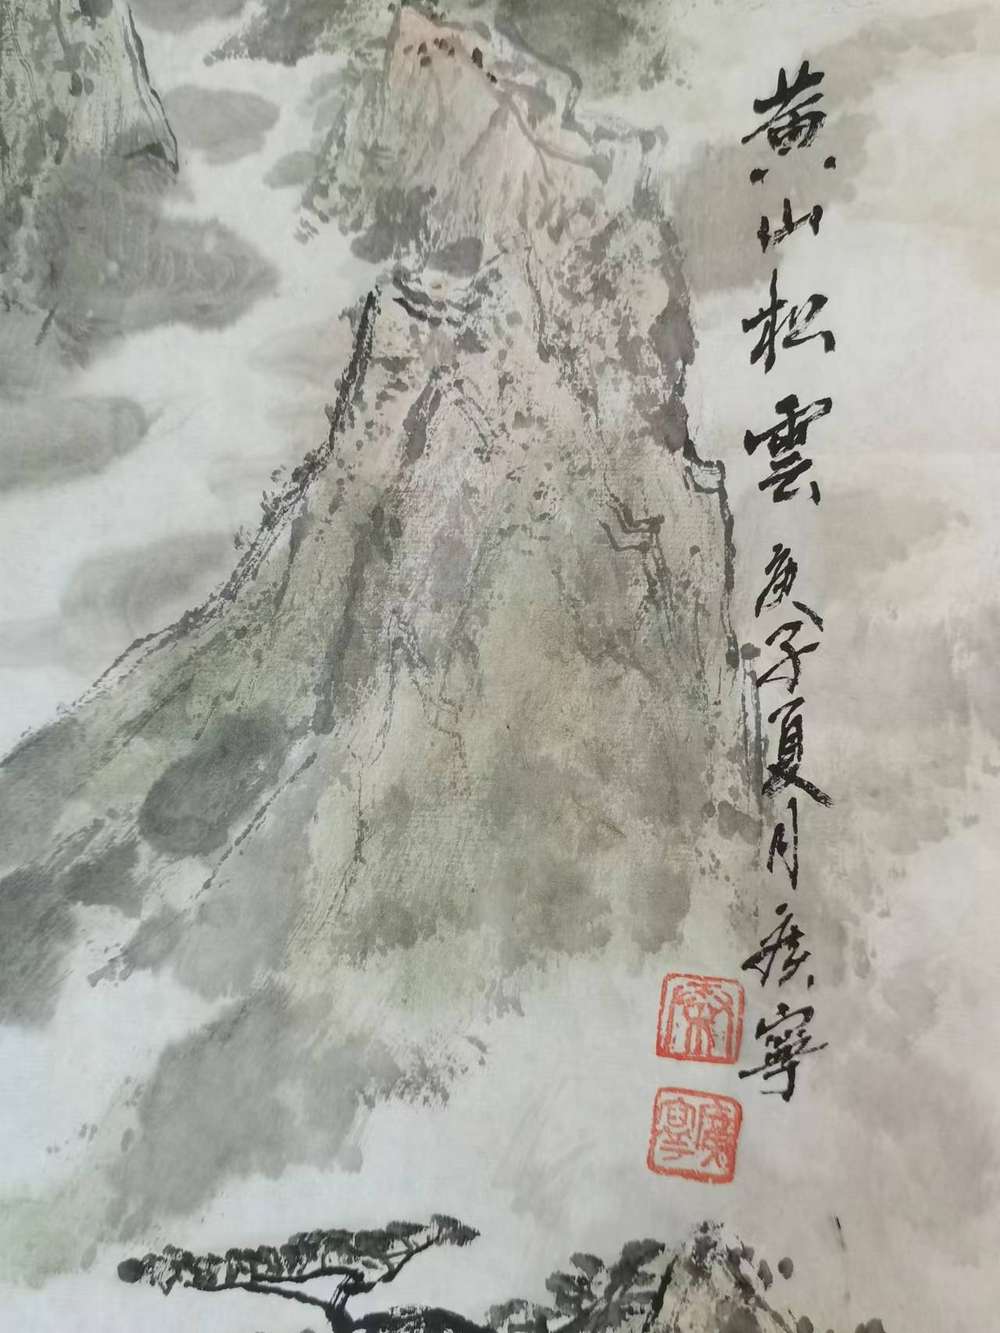 黄山松雲 庚子夏月 寧